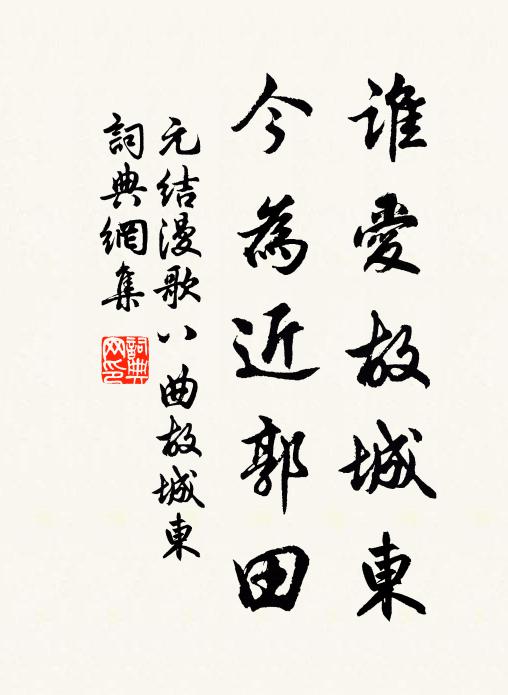 誰愛故城東
今為近郭田
元结漫歌八曲故城東
詞典網集
詞典網印